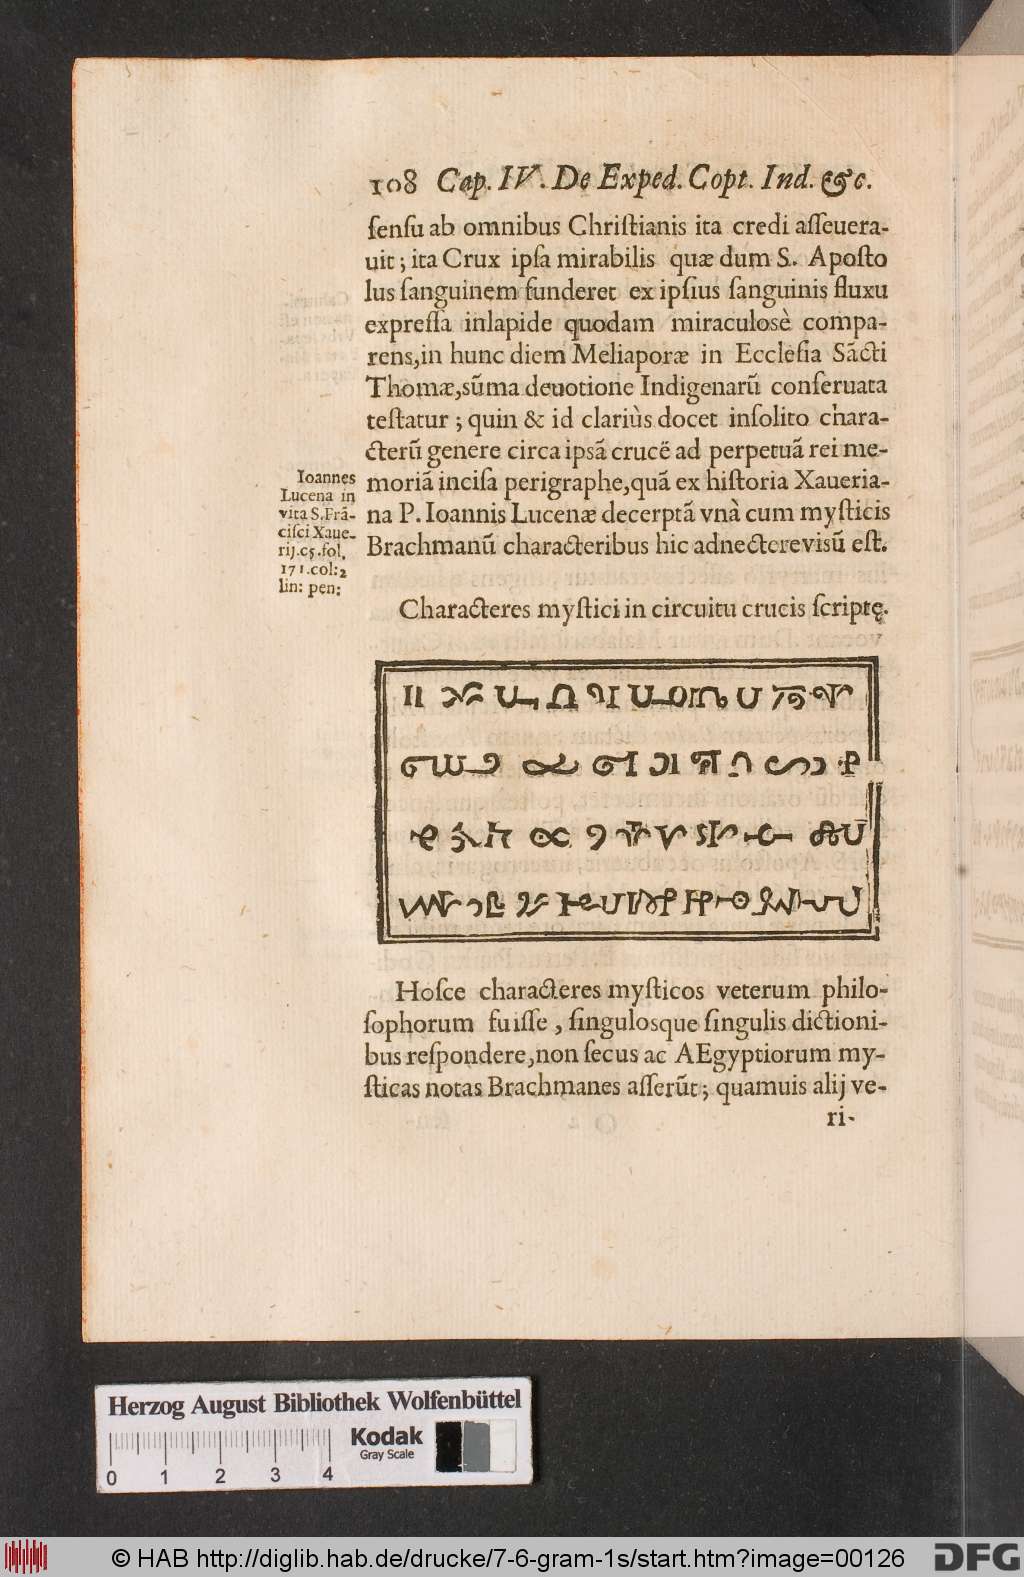 108 Cap. IV. De Exped. Copt. Ind. &c.
ſenſu ab omnibus Chriſtianis ita credi aſſeuera-
uit; ita Crux ipſa mirabilis quæ dum S. Apoſto
lus ſanguinem funderet ex ipſius ſanguinis fluxu
expreſſa inlapide quodam miraculosè compa-
rens,in hunc diem Meliaporæ in Eccleſia Sãcti
Thomæ,sũma deuotione Indigenarũ conſeruata
teſtatur; quin & id clariùs docet inſolito chara-
cterũ genere circa ipsã crucẽ ad perpetuã rei me-
moriã inciſa perigraphe,quã ex hiſtoria Xaueria-
na P. Ioannis Lucenæ decerptã vnà cum myſticis
Brachmanũ characteribus hic adnectere visũ eſt.
Ioannes
Lucena in
vita S.Frã-
ciſci Xaue-
rij.c5.fol.
171.col:2
lin: pen:
Characteres myſtici in circuitu crucis ſcriptę.
Hoſce characteres myſticos veterum philo-
ſophorum fuiſſe, ſinguloſque ſingulis dictioni-
bus reſpondere,non ſecus ac AEgyptiorum my-
ſticas notas Brachmanes aſſerũt; quamuis alij ve-
ri-
Herzog August Bibliothek Wolfenbüttel
Kodak
Gray Scale
0 1 2 3 4
© HAB http://diglib.hab.de/drucke/7-6-gram-1s/start.htm?image=00126
DFG